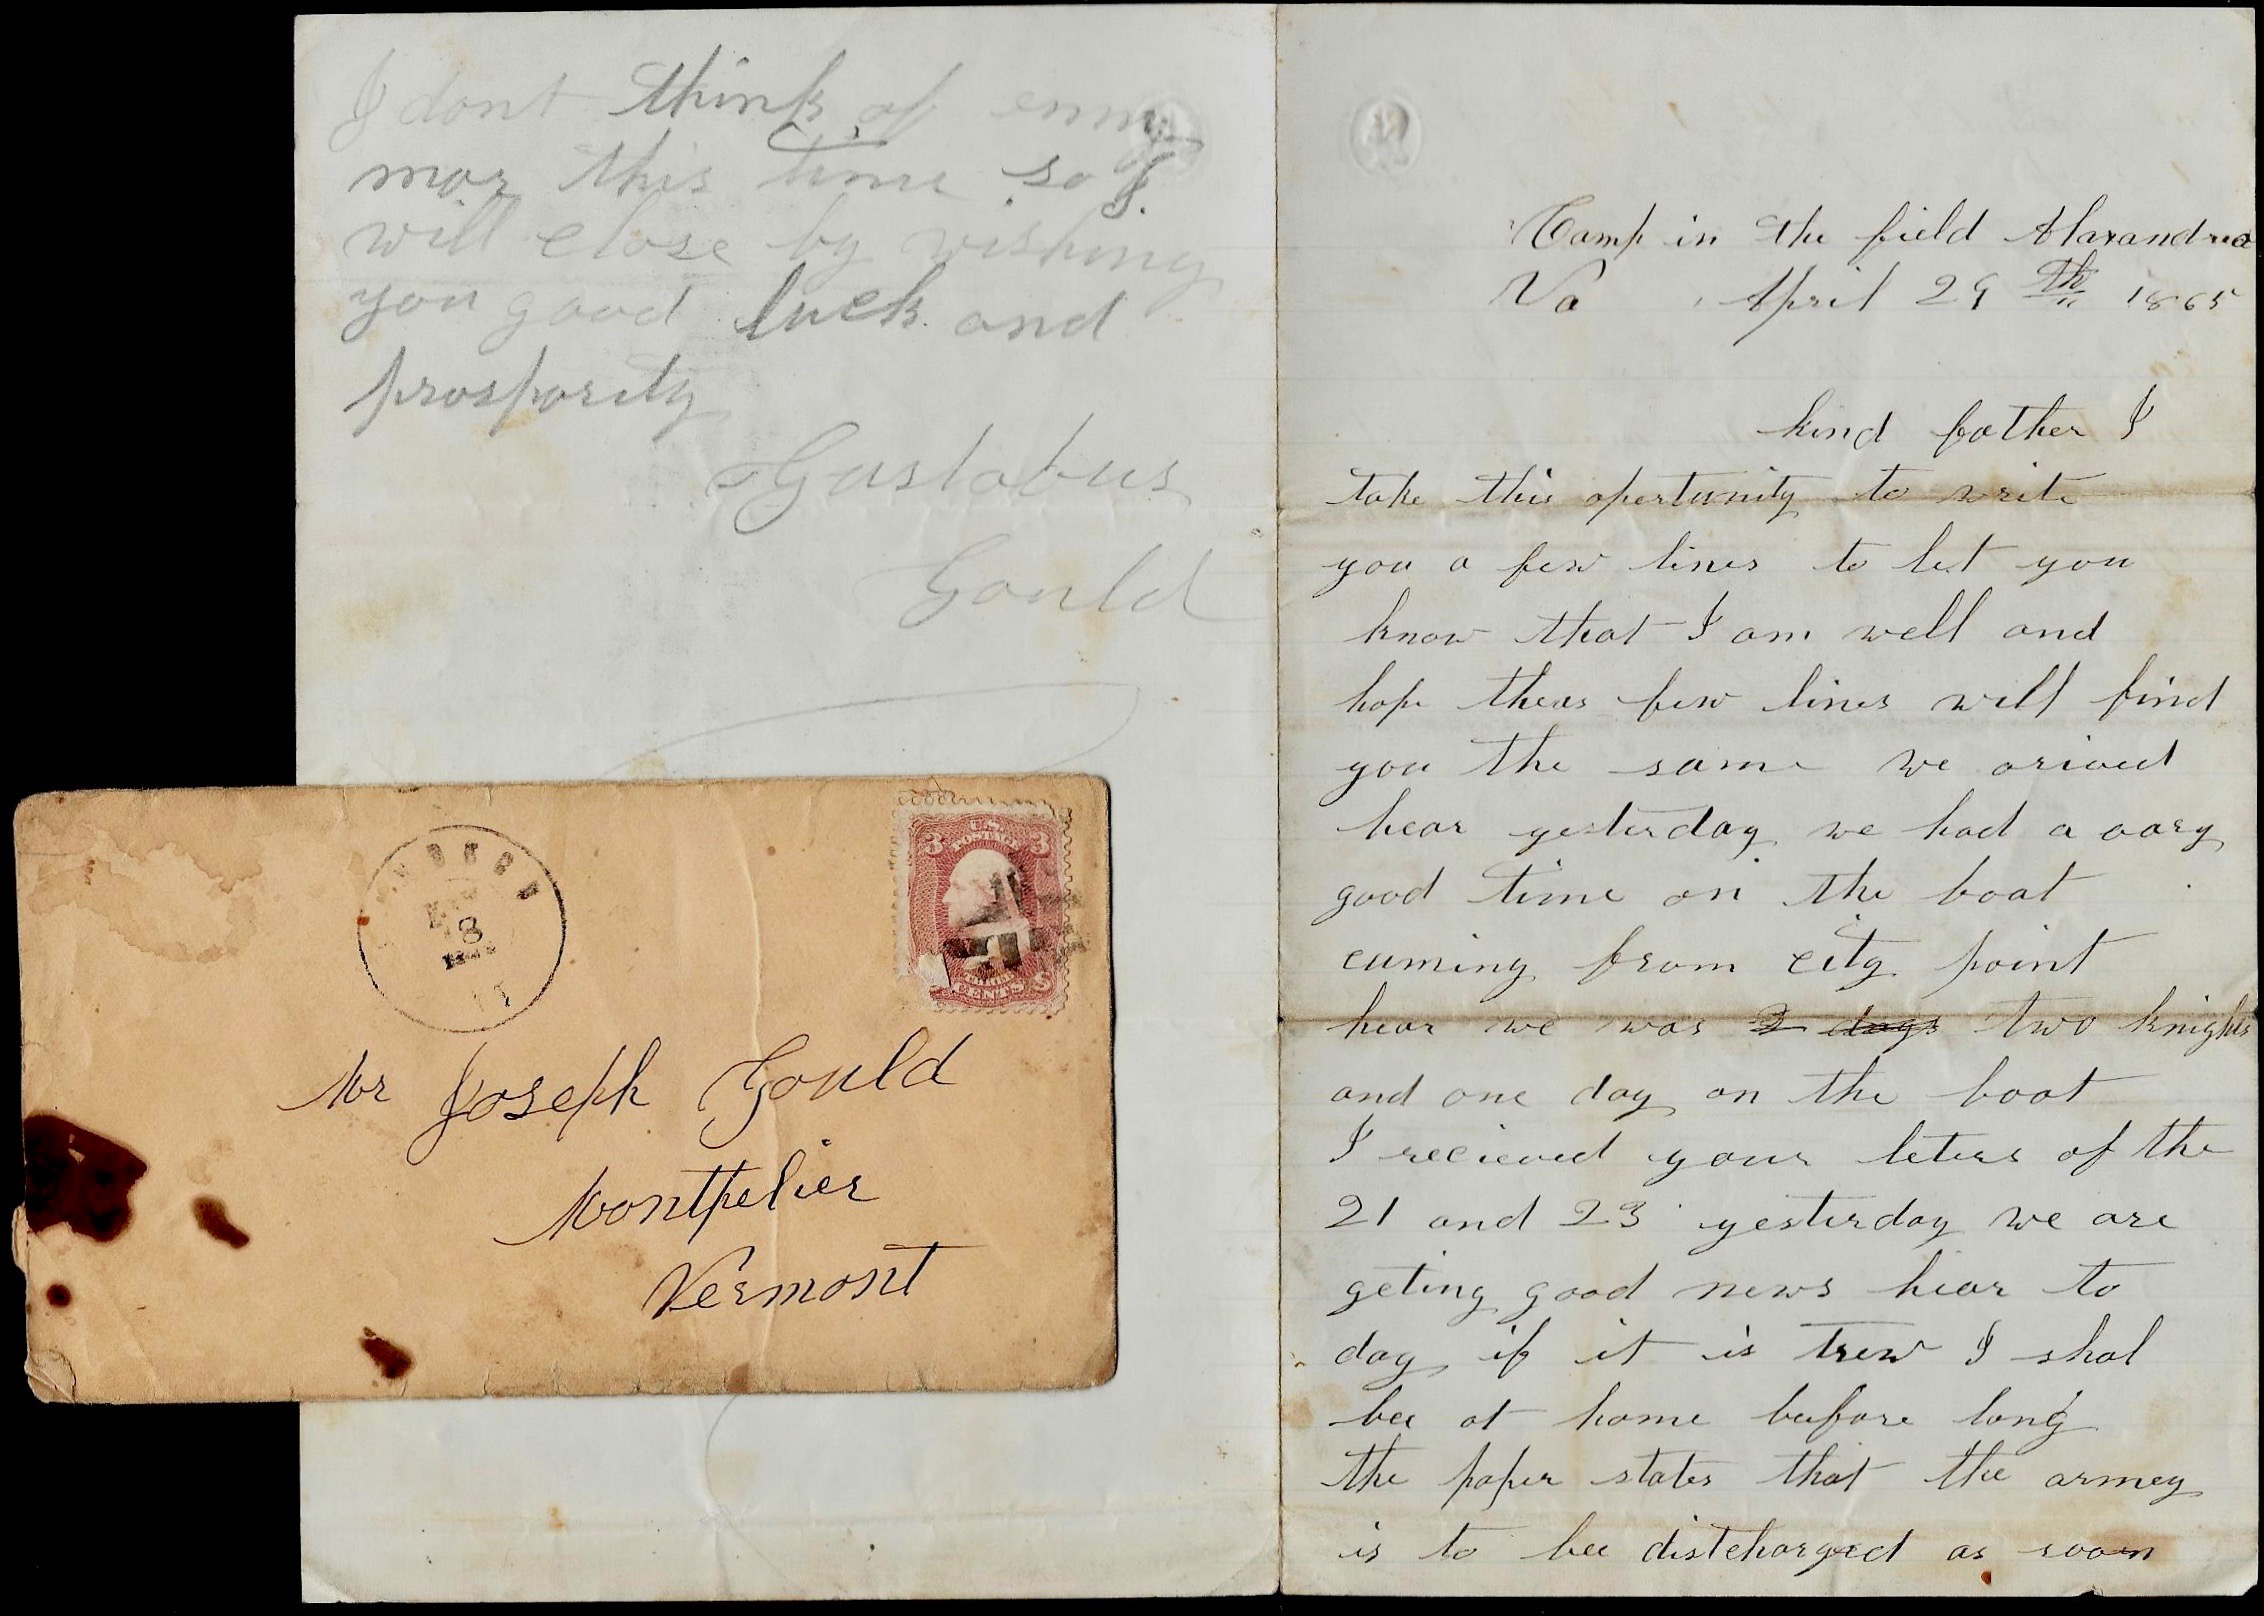 I dont think of enny
mor this time so I
will close by wishing
you good luck and
prosporitz
Gustabus
Gould
Camp in the field Alaxandrea
Va April 29 th 1865
kind father I
take this opertunity to write
you a few lines to let you
know that I am well and
hope theas few lines will find
you the same we arived
hear yesterday we had a vary
good time on the boat
cuming from city point
hear we was 2 days two knights
and one day on the boat
I recieved your leters of the
21 and 23 yesterday we are
geting good news hear to
day if it is trew I shal
bee at home beefore long
the paper states that the armey
is to bee distcharged as soon
U.S. POSTAGE
3 3
CENTS
8
Mr Joseph Gould
Montpelier
Vermont